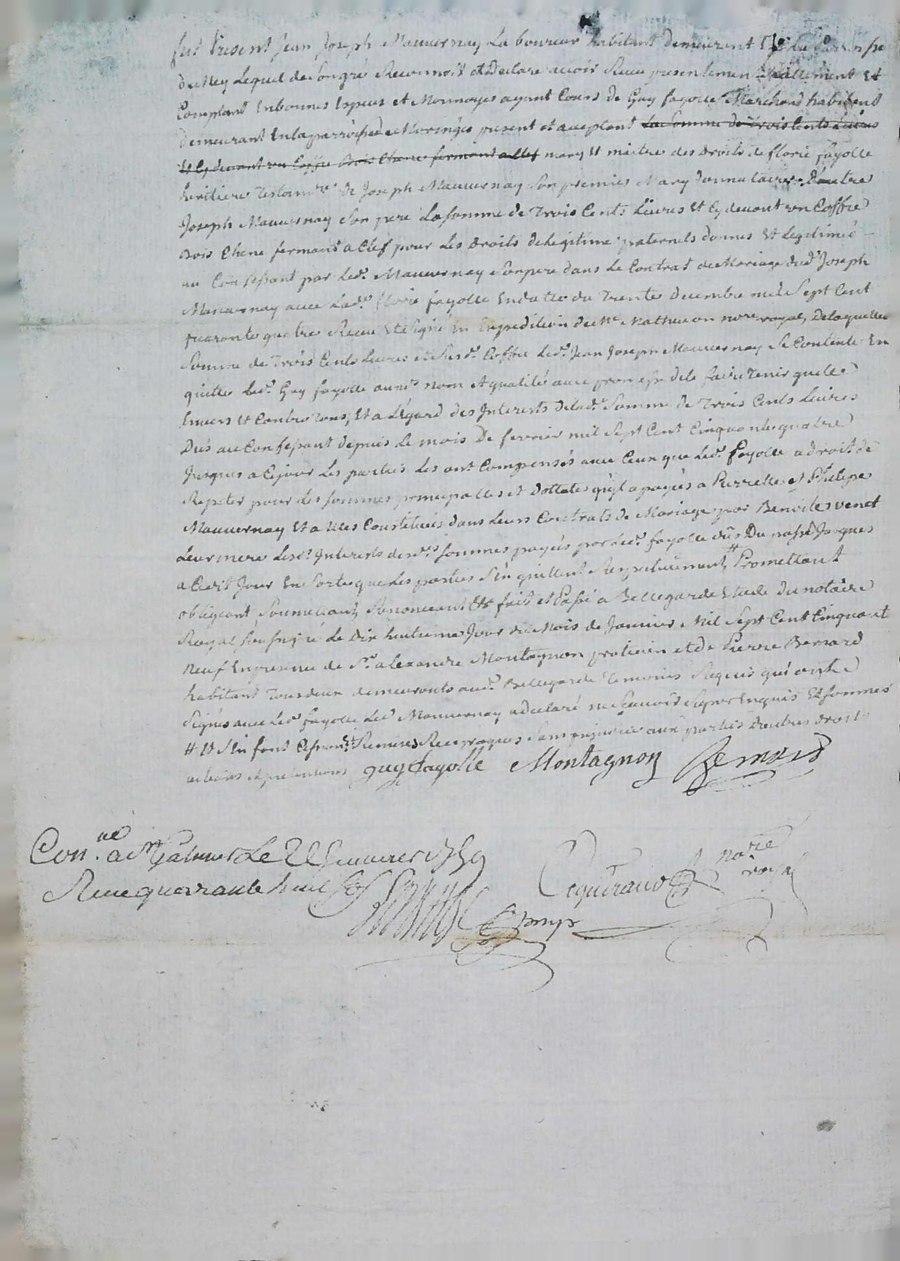 fut Present Jean Joseph Mauvernay Laboureur habitant demeurent
du Rey Lequel de Songre Reconnoit et declare avoir Receu presentement reallement et
Comptant En bonnes Especes et Monnoyes ayant Cours de Guy fayolle Marchand habitant
demeurant En la parroisse de Maringes present et acceptant la somme de trois Cents Livres
et Cydevant un Coffre Bois Chene fermant a Clef mary et maitre des Droits de florie fayolle
heritiere testam.re de Joseph Mauvernay Son premier Mary donnataire d'autre
Joseph Mauvernay Son pere La somme de Trois Cents Livres et Cydevant un Coffre
Bois Chene fermant a Clef pour Les Droits de legitime paternels donnes et legitimé
au Confessant par led.t Mauvernay Son pere dans Le Contrat de Mariage dud.t Joseph
Mauvernay avec Lad.e florie fayolle En datte du Trente Decembre mil Sept Cent
quarante quatre Receu et Signé En Expedition de M.e Mathevon no.re royal, De laquelle
Somme de Trois Cents Livres et Susd.t Coffre Led.t Jean Joseph Mauvernay Se Contente En
quitte Led.t Guy fayolle aux.d nom et qualité avec promesse de le faire tenir quitte
Envers et Contre tous, Et a L'égard des Interets de lad.e Somme de Trois Cents Livres
Dus au Confessant depuis Le mois De fevrier mil Sept Cent Cinquante quatre
Jusques a Cejour Les parties Les ont Compensés avec Ceux que Led.t fayolle a droit de
Repeter pour des sommes principalles et Dottales qu'il a payés a Pierrette et Philipe
Mauvernay Et a Elles Constitués dans Leurs Contrats de Mariage par Benoite venet
Leur mere Lesd.ts Interets desd.tes Sommes payés par Led.t fayolle dus Du passé Jusques
a Cedit Jour En Sorte que Les parties S'en quittent Respectivement # Promettant
obligeant, Soumettant, Renonceant Et.c fait et Passé a Bellegarde Etude du notaire
Royal Soussigné Le Dix huitieme Jour du Mois de Janvier Mil Sept Cent Cinquant
Neuf En presence de S.r alexandre Montagnon praticien et de Pierre Bernard
habitant tous deux demeurants aud.t Bellegarde temoins Requis qui ont
Signés avec Led.t fayolle Led.t Mauvernay a declaré ne Scavoir Signer Enquis Et Sommés
# Et S'en font Remises Reciproques Sans prejudice aux parties D'autres droits
actions et pretentions guy fayolle Montagnon Bernard
Con.lé a St Galmier Le 22 Janvier 1759
Receu quarante huit Sols
Ceguiraud no.re royal